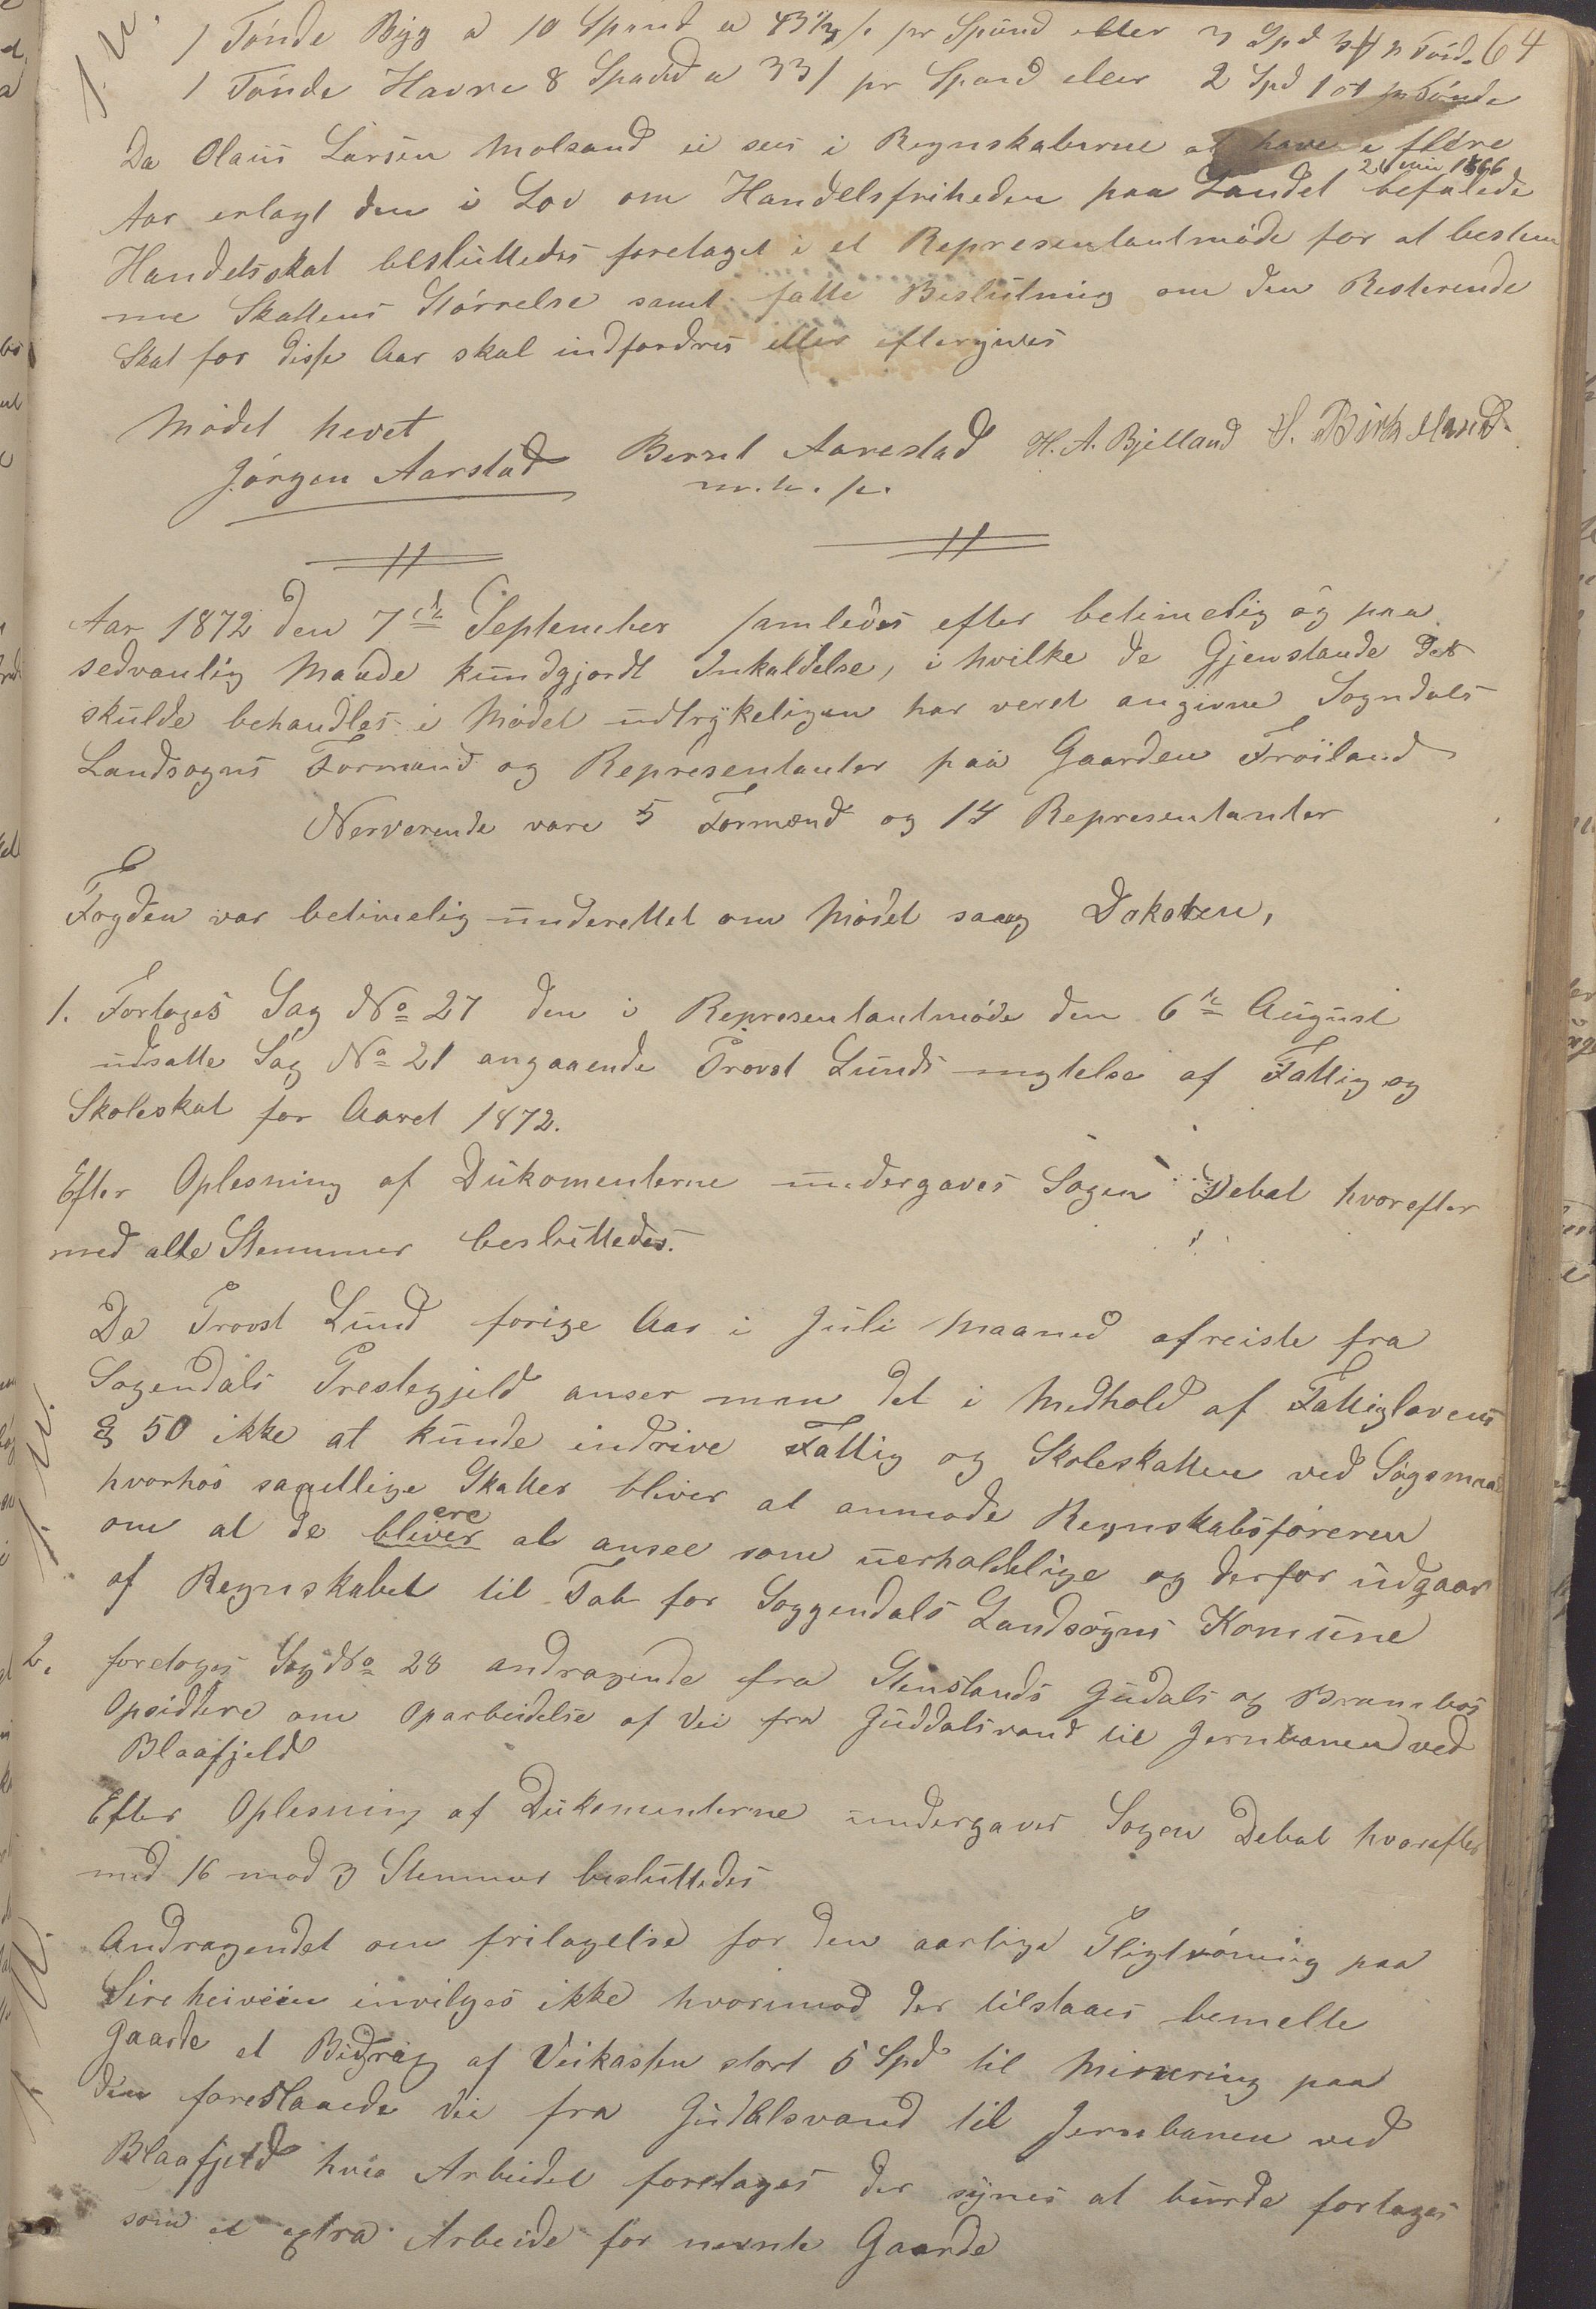 64
1 Tönde Byg a 10 Spand a 43 1/2 s. pr Spand eller 3 Spd
1 Tönde Havre 8 Spand a 33 s pr Spand eller 2 Spd 1 ort pr Tönde
Da Olaus Larsen Molsand ei sees i Regnskaberne at have i flere
Aar erlagt den i Lov om Handelsfriheden paa Landet 26 Mai 1866 befalede
Handelsskat besluttedes foretaget i et Representantmöde for at bestem
me Skattens Störrelse samt fatte Beslutning om den Resterende
Skat for disse Aar skal indfordres eller eftergives
Mödet hevet
Jörgen Aarstad Berent Aarestad H. A. Bjelland S. Birkeland
m. h. p.
Aar 1872 den 7de September samledes efter betimelig og paa
sedvanlig Maade kundgjordt Inkaldelse, i hvilke de Gjenstande der
skulde behandles i Mödet udtrykeligen har veret angivne Sogndals
Landsogns Formænd og Representanter paa Gaarden Fröiland
Nerverende vare 5 Formænd og 14 Representanter
Fogden var betimelig underettet om Mödet saag Doktoren,
1. Fortages Sag No 27 den i Representantmöde den 6te August
udsatte Sag No 21 angaaende Provst Lunds negtelse af Fattig og
Skoleskat for Aaret 1872.
Efter Oplesning af Dukomenterne undergaves Sagen Debat hvorefter
med alle Stemmer besluttedes.
Da Provst Lund forige Aar i Juli Maaned afreiste fra
Sogendals Prestegjeld anser man det i Medhold af Fattiglovens
§ 50 ikke at kunde indrive Fattig og Skoleskatten ved Sögsmaal
hvorhos samtlige Skatter bliver at anmode Regnskabsföreren
om at de bliver ere at ansee som uerholdelige og derfor udgaar
af Regnskabet til Tab for Soggendals Landsogns Komune
2. foretages Sag No 28 andragende fra Stenslands Gudals og
Opsiddere om Oparbeidelse af Vei fra Guddalsvand til Jernbanen ved
Blaafjeld
Efter Oplesning af Dukomenterne undergaves Sagen Debat hvorefter
med 16 mod 3 Stemmer besluttedes
Andragendet om fritagelse for den aarlige Pligtröning paa
Sireheiveien invilges ikke hvorimod der tilstaaes bemelte
Gaarde et Bidrag af Veikassen stort 5 Spd til Minering paa
den foreslaaede Vei fra Gudalsvand til Jernbanen ved
Blaafjeld hvis Arbeidet foretages der synes at burde fortages
som et extra Arbeide for nevnte Gaarde